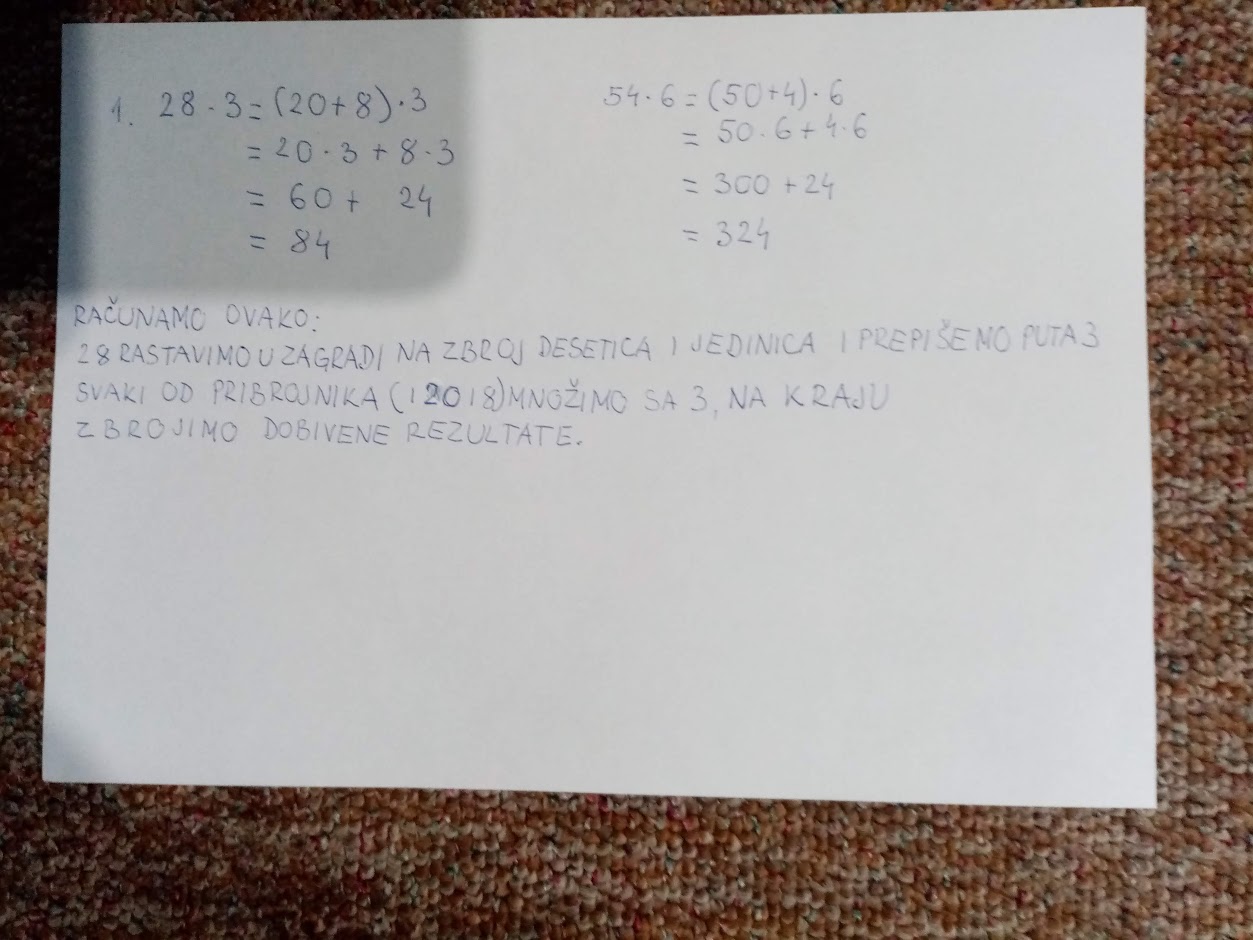 1. 28 · 3 = (20+8) · 3
= 20 · 3 + 8 · 3
= 60 + 24
= 84
54 · 6 = (50+4) · 6
= 50 · 6 + 4 · 6
= 300 + 24
= 324
RAČUNAMO OVAKO:
28 RASTAVIMO U ZAGRADI NA ZBROJ DESETICA I JEDINICA I PREPIŠEMO PUTA 3
SVAKI OD PRIBROJNIKA (I 20 I 8) MNOŽIMO SA 3, NA KRAJU
ZBROJIMO DOBIVENE REZULTATE.